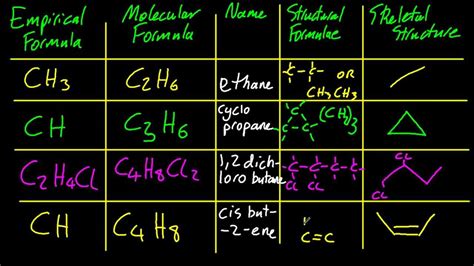 Empirical Formula
Molecular Formula
Name
Structural Formulae
Skeletal Structure
CH3
C2H6
ethane
-C-C- OR CH3CH3
CH
C3H6
cyclo propane
C C C (CH2)3
C2H4Cl
C4H8Cl2
1,2 dich-
loro butane
-C-C-C-C-
Cl Cl
Cl
Cl
CH
C4H8
cis but-
-2-ene
C=C